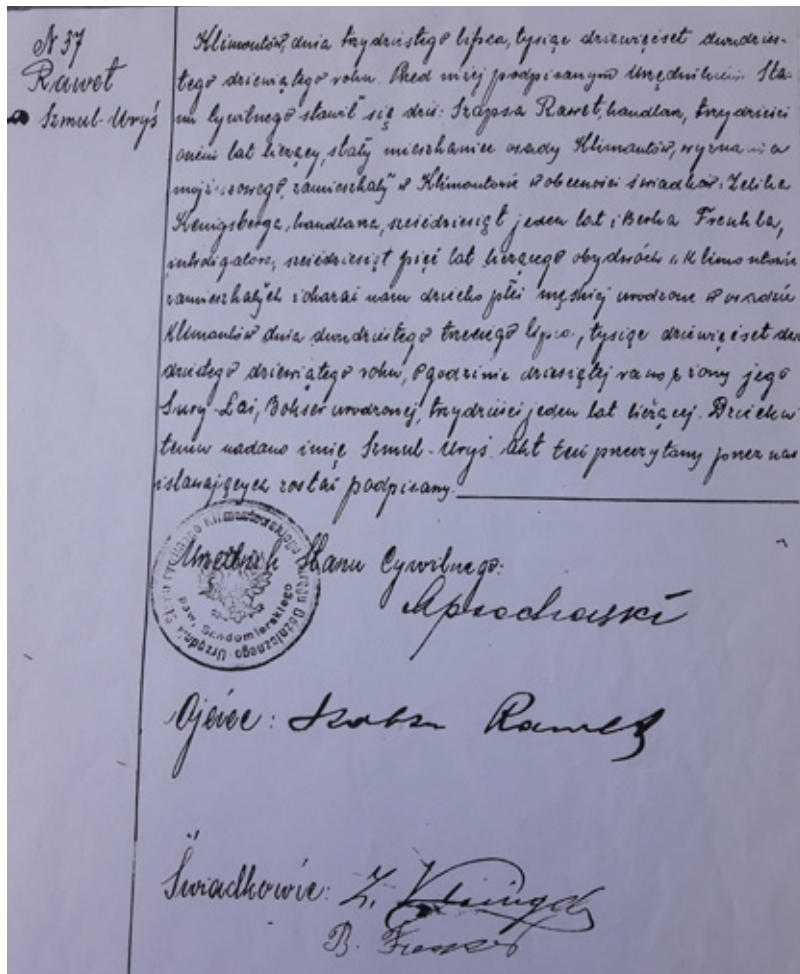 N 37
Rawet
Szmul-Uryś
Klimontów, dnia trzydziestego lipca, tysiąc dziewięćset dwudzies-
tego dziewiątego roku. Przed niżej podpisanym Urzędnikiem Sta-
nu Cywilnego stawił się dziś: Szapsa Rawet, handlarz, trzydzieści
osiem lat liczący, stały mieszkaniec osady Klimontów, wyznania
mojżeszowego, zamieszkały w Klimontowie w obecności świadków: Zelika
Kenigsberga, handlarza, sześćdziesiąt jeden lat i Berka Frenkla,
introligatora, sześćdziesiąt pięć lat liczącego obydwóch w Klimontowie
zamieszkałych i okazał nam dziecko płci męskiej urodzone w osadzie
Klimontów dnia dwudziestego trzeciego lipca, tysiąc dziewięćset dwu
dziestego dziewiątego roku, o godzinie dziesiątej rano z żony jego
Sury-Łai, Bokser urodzonej, trzydzieści jeden lat liczącej. Dziecku
temu nadano imię Szmul-Uryś. Akt ten przeczytany przez nas
i stawających został podpisany.
Urzędnik Stanu Cywilnego:
Urzędnik Stanu Cywilnego Klimontowskiego Urzędu Gminnego
pow. Sandomierskiego
Ojciec: Rawet
Świadkowie: Z.
B.